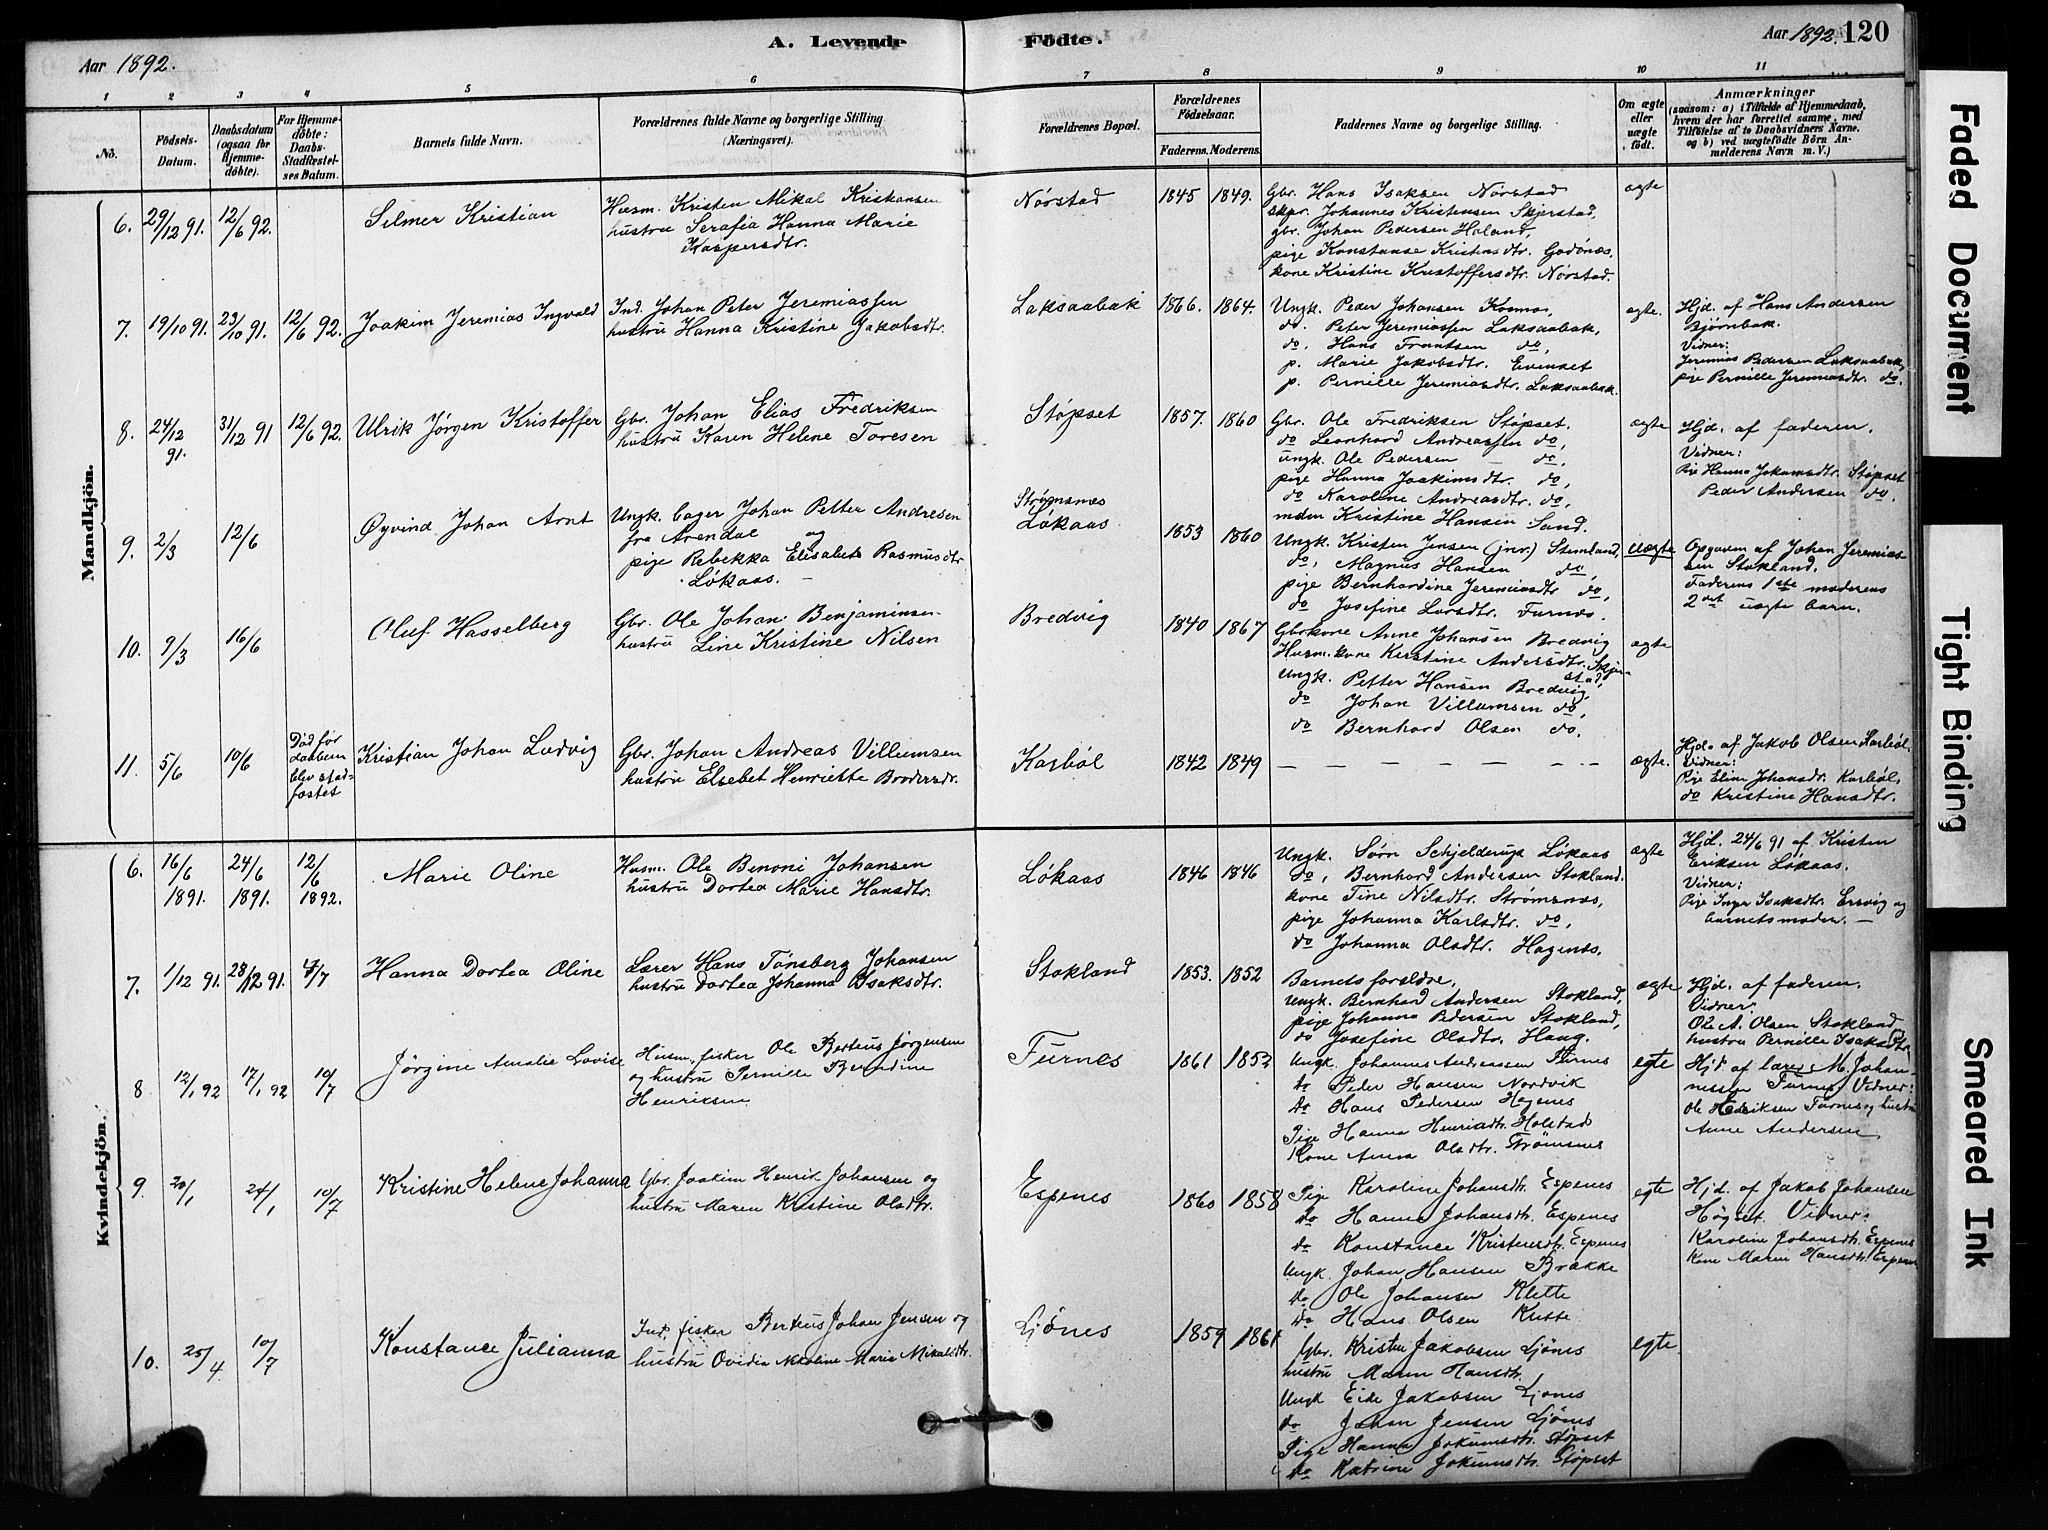 Aar 1892.
A. Levende Födte.
Aar 1892. 120
1 2 3 4 5 6 7 8 9 10 11
No.
Födsels-
Datum.
Daabsdatum
(ogsaa for
Hjemme-
döbte).
For Hjemme-
döbte:
Daabs-
Stadfæstel-
ses Datum.
Barnets fulde Navn.
Forældrenes fulde Navne og borgerlige Stilling
(Næringsvei).
Forældrenes Bopæl.
Forældrenes
Födselsaar.
Faderens. Moderens.
Faddernes Navne og borgerlige Stilling.
Om ægte
eller
uægte
födt.
Anmærkninger
(saasom: a) i Tilfælde af Hjemmedaab,
hvem der har forrettet samme, med
Tilföielse af to Daabsvidners Navne,
og b) ved uægtefödte Börn An-
melderens Navn m. V.)
Mandkjön.
6. 29/12 91. 12/6 92.
Selmer Kristian
Husm. Kristen Mikal Kristiansen
hustru Serafia Hanna Marie
Kaspersdtr.
Nørstad
1845 1849.
Gbr. Hans Isaksen Nørstad
skpr. Johannes Kristensen Skjerstad,
gbr. Johan Pedersen Høland,
pige Konstanse Kristiansdtr. Godönæs,
kone Kristine Kristoffersdtr. Nørstad.
ægte
7. 19/10 91. 23/10 91. 12/6 92.
Joakim Jeremias Ingvald
Ind. Johan Peter Jeremiassen
hustru Hanna Kristine Jakobsdtr.
Laksaabak
1866. 1864.
Ungk. Peder Johansen Kosmo,
do. Peter Jeremiassen Laksaabak,
do, Hans Frantsen do,
p. Marie Jakobsdtr. Evenset
p. Pernille Jeremiasdtr. Laksaabak.
ægte.
Hjd. af Hans Andersen
Bjørnbak.
Vidner:
Jeremias Pedersen Laksaabak,
pige Pernille Jeremiasdtr. do.
8. 24/12 91. 31/12 91 12/6 92.
Ulrik Jørgen Kristoffer
Gbr. Johan Elias Fredriksen
hustru Karen Helene Toresen
Støpset
1857. 1860
Gbr. Ole Fredriksen Støpset.
do Leonhard Andreassen do,
ungk. Ole Pedersen — do.
pige Hanna Joakimsdtr. do,
do Karoline Andreasdtr. do,
mden Kristine Hansen Sand.
ægte
Hjd. af faderen.
Vidner:
Pige Hanna Jokumsdtr. Støpset
Peder Andersen do.
9. 2/3 12/6
Øyvind Johan Arnt
Ungk. Cager Johan Petter Andresen
fra Arendal og
pige Rebekka Elisabeth Rasmusdtr.
Løkaas. —
Strømsnæs
Løkaas
1853 1860
Ungk. Kristen Jensen (jnr.) Stemland,
do, Magnus Hansen do,
pige Bernhardine Jeremiasdtr do,
do Josefine Larsdtr. Furnæs.
uægte
Opgaven af Johan Jeremias-
sen Stokland.
Faderens 1ste moderens
2det uægte barn.
10. 9/3 16/6
Oluf Hasselberg
Gbr. Ole Johan Benjaminsen
hustru Line Kristine Nilsen
Bredvig
1840 1867
Gbrkone Anne Johansen Bredvig
Husm.kone Kerstine Andersdtr. Skjer-
stad,
Ungk. Petter Hansen Bredvig,
do Johan Villumsen do,
do Bernhard Olsen do.
ægte
11. 5/6 10/6
Død før
daaben
blev stad-
fæstet
Kristian Johan Ludvig
Gbr. Johan Andreas Villumsen
hustru Elsebet Henriette Brodersdr.
Karbøl
1842 1849
— — — — — — —
ægte.
Hjd. af Jakob Olsen Karbøl,
Vidner:
Pige Eline Johansdr. Karbøl,
do Kristine Hansdtr.
Kvindekjön.
6. 16/6 1891. 24/6 1891. 12/6 1892.
Marie Oline
Husm. Ole Benoni Johansen
hustru Dortea Marie Hansdtr.
Løkaas
1846 1846
Ungk. Sørn Schjelderup Løkaas
do, Bernhard Andersen Stokland.
kone Tine Nilsdtr. Strømsnæs,
pige Johanna Karlsdtr. do,
do Johanna Olsdtr. Hagenæs.
ægte
Hjd. 24/6 91 af Kristen
Eriksen Løkaas.
Vidner:
Pige Inger Isaksdtr. Ersvig og
barnets moder. —
7. 1/12 91. 28/12 91. 4/7
Hanna Dortea Oline
Lærer Hans Tønsberg Johansen
hustru Dortea Johanna Isaksdtr.
Stokland
1853. 1852
Barnets forældre,
ungk. Bernhard Andersen Stokland,
pige Johanna Pedersen Stokland,
do Josefine Olsdtr. Haug.
ægte
Hjd. af faderen.
Vidner:
Ole A. Olsen Stokland
hustru Pernille Isaksdtr.
8 12/1 92 17/1 92 10/7
Jørgine Amalie Lovise
Husm. fisker Ole Berteus Jørgensen
og hustru Pernille Berndine
Henriksen
Furnes
1861 1852
Ungk. Johannes Andreassen Furnes
do Peder Hansen Nordvik
do Hans Pedersen Hagenes
Pige Hanna Henriksdtr. Holstad
Kone Anna Olsdtr. Strömsnes
egte
Hjd. af lærer M. Johan-
nessen Furnes. Vidner:
Ole Hendriksen Furnes og hustru
Anne Andersen
9. 20/1 24/1 10/7
Kristine Helene Johanna
Gbr. Joakim Henrik Johansen og
hustru Maren Kristine Olsdtr.
Espenes
1860 1858
Pige Karoline Johansdtr. Espenes
do Hanna Johansdtr. Espenes
do Konstance Kristensdtr. Espenes
Ungk. Johan Hansen Brække
do Ole Johansen Klette
do Hans Olsen Klette
egte
Hjd. af Jakob Johansen
Høgset. Vidner:
Karoline Johansdtr. Espenes
Kone Maren Hansdtr. Espenes
10. 25/4 10/7
Konstance Julianna
Ind. fisker Berteus Johan Jensen og
hustru Ovidia Nikoline Marie Mikalsdtr.
Ljönes
1859 1861
Gbr. Kristen Jakobsen Ljönes
hustru Maren Hansdtr.
Ungk Eide Jakobsen Ljönes
do Johan Jensen Ljönes
Pige Hanna Jokumsdtr. Støpset
do Katrine Jokumsdtr. Støpset
egte
Faded Document
Tight Binding
Smeared Ink